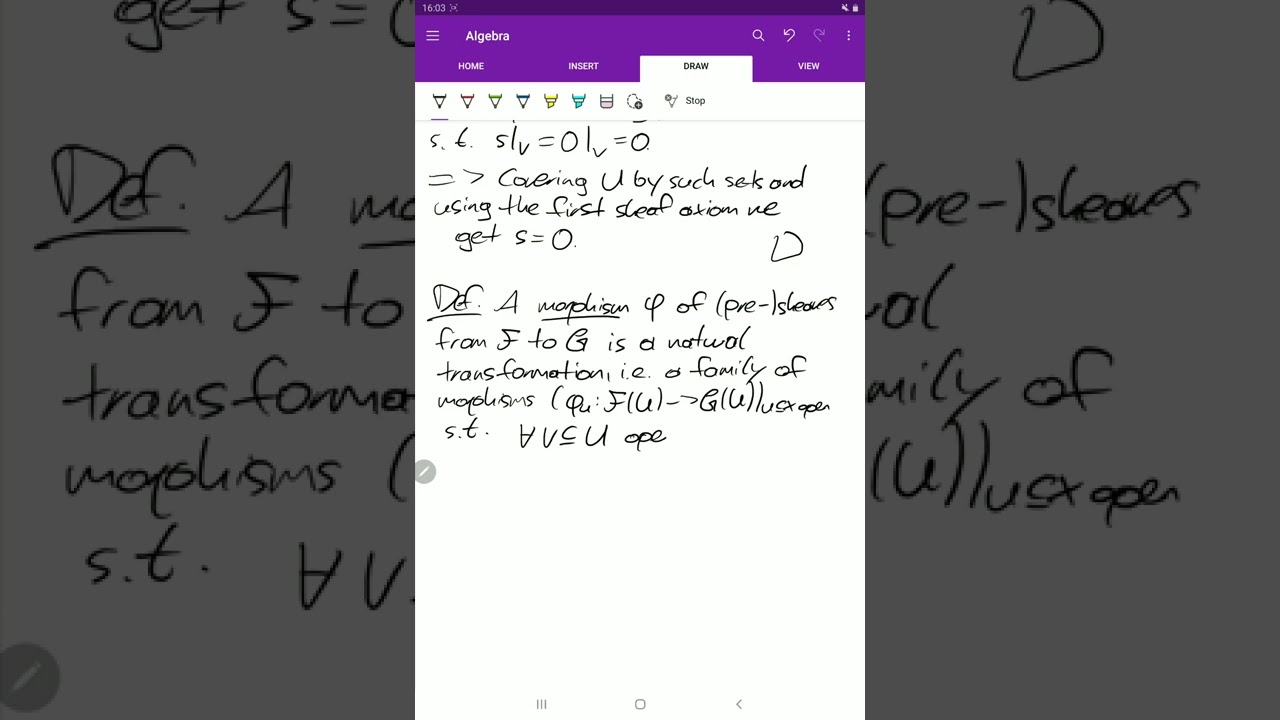 16:03
Algebra
HOME INSERT DRAW VIEW
Stop
s.t. s|_V = 0|_V = 0.
=> Covering U by such sets and
using the first sheaf axiom we
get s = 0. □
Def. A morphism φ of (pre-)sheaves
from F to G is a natural
transformation, i.e. a family of
morphisms (φ_U : F(U) -> G(U))_{U⊆X open}
s.t. ∀ V ⊆ U ope